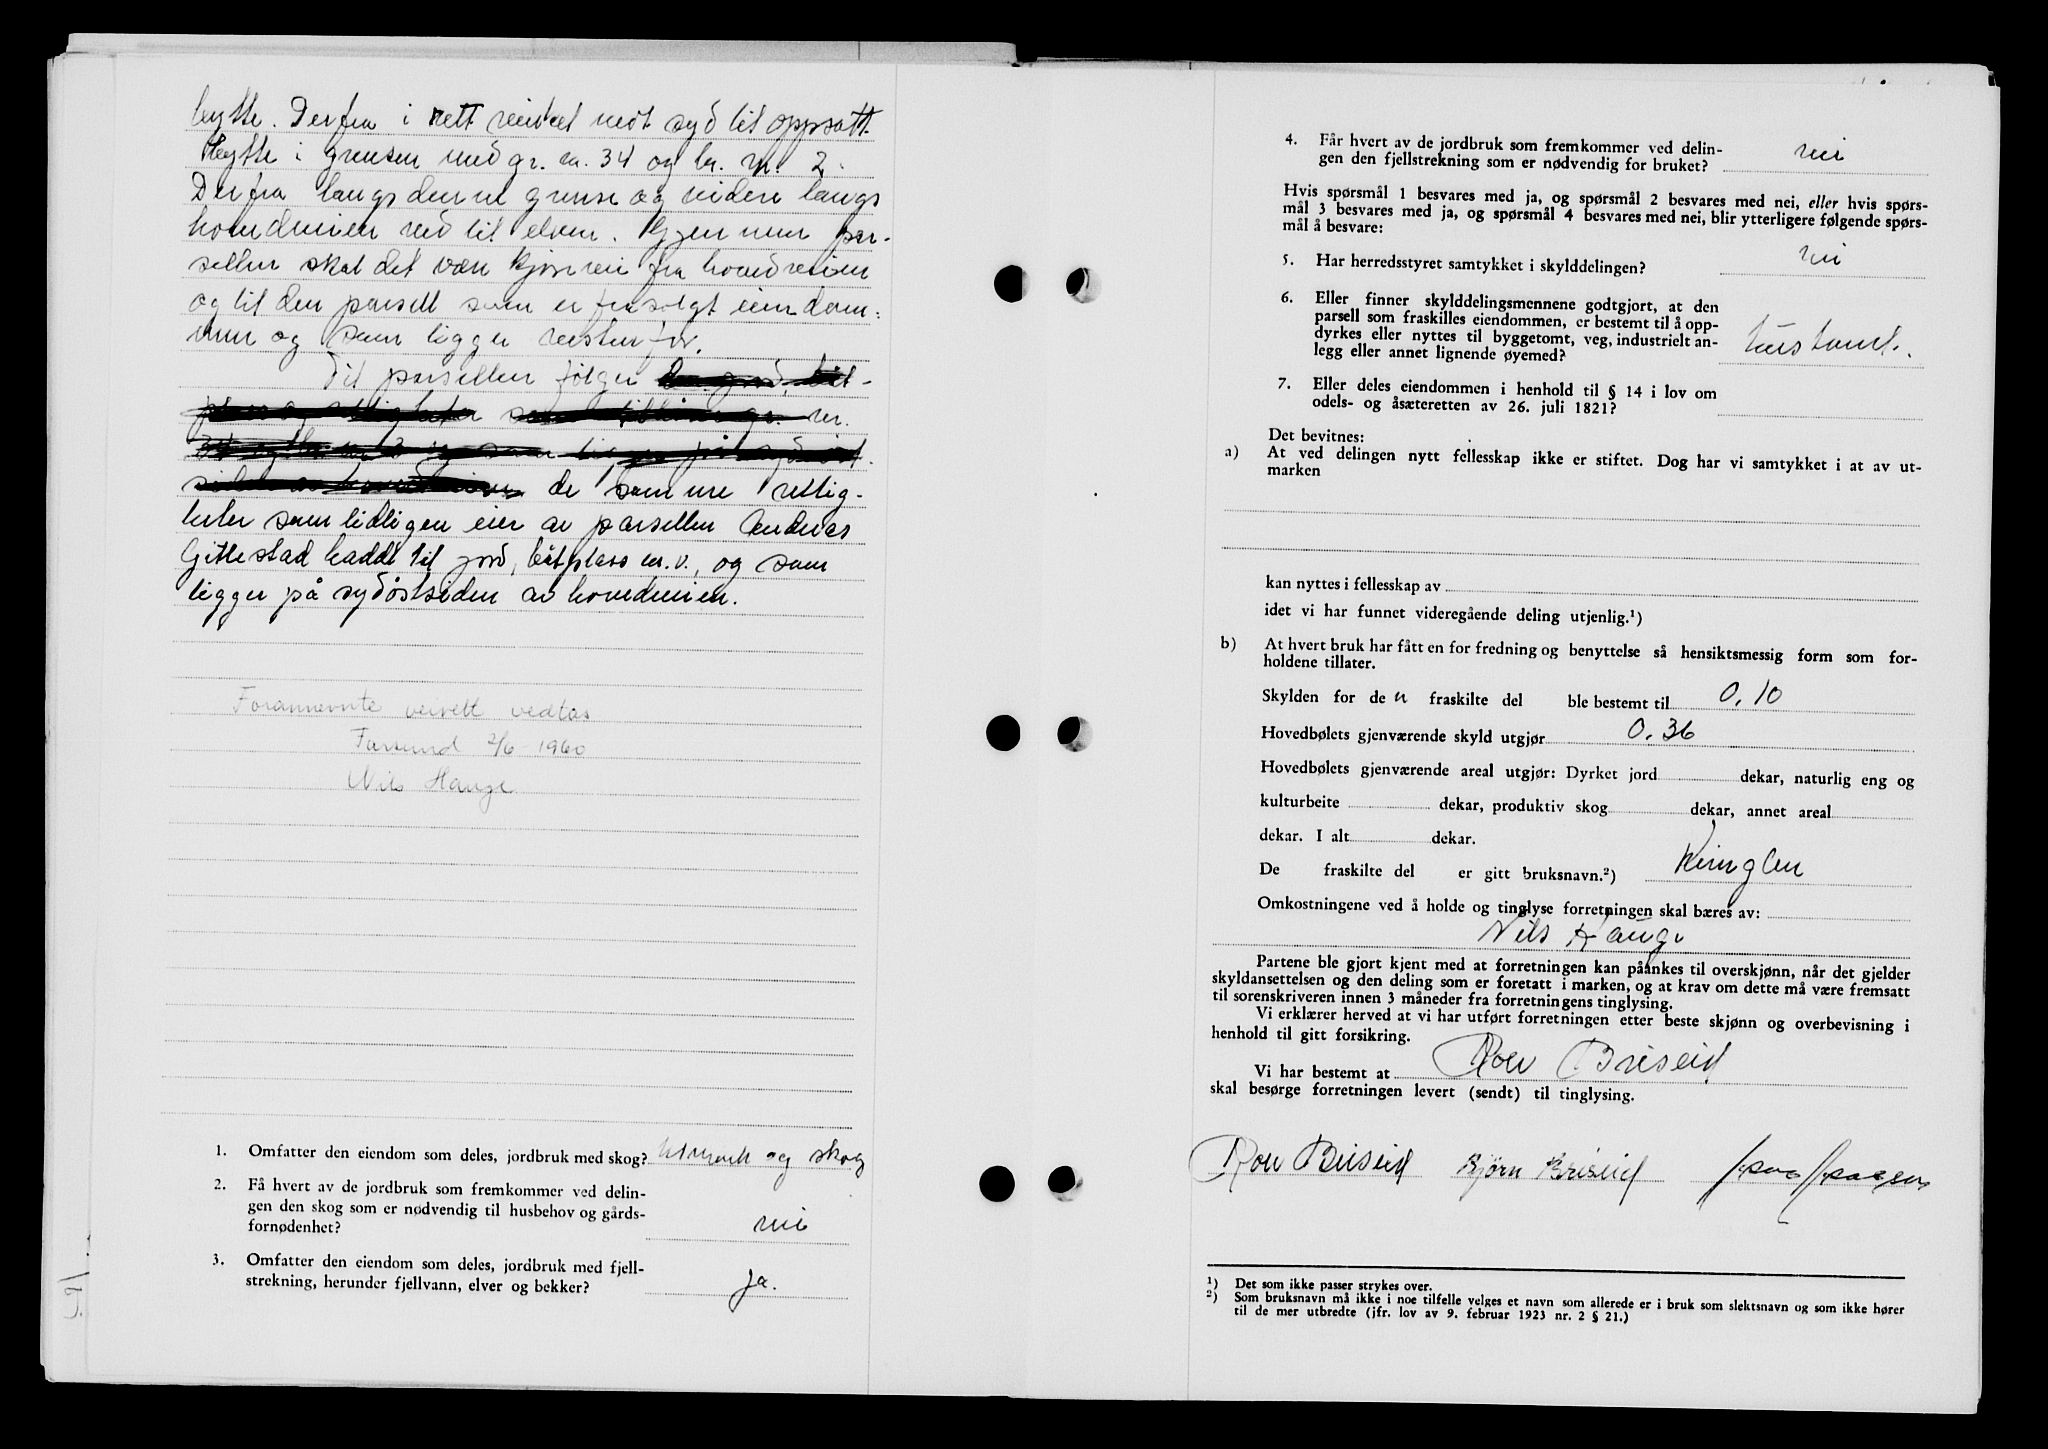 bytte. Derfra i rett vinkel mot syd til oppsatt
bytte i grensen med gr. nr. 34 og br. nr. 2.
Derfra langs denne grense og videre langs
hovedveien ned til elven. Gjennom par-
sellen skal det være kjørevei fra hovedveien
og til den parsell som er frasolgt eiendom-
men og som ligger vestenfor.
Til parsellen følger
de samme rettig-
heter som tidligere eier av parsellen Andreas
Gittestad hadde til jord, båtplass m.v., og som
ligger på sydøstsiden av hovedveien.
Forannevnte veirett vedtas
Farsund 2/6-1960
Nils Hauge
1. Omfatter den eiendom som deles, jordbruk med skog? utmark og skog
2. Få hvert av de jordbruk som fremkommer ved delin-
gen den skog som er nødvendig til husbehov og gårds-
fornødenhet? nei
3. Omfatter den eiendom som deles, jordbruk med fjell-
strekning, herunder fjellvann, elver og bekker? ja.
4. Får hvert av de jordbruk som fremkommer ved delin-
gen den fjellstrekning som er nødvendig for bruket? nei
Hvis spørsmål 1 besvares med ja, og spørsmål 2 besvares med nei, eller hvis spørs-
mål 3 besvares med ja, og spørsmål 4 besvares med nei, blir ytterligere følgende spørs-
mål å besvare:
5. Har herredsstyret samtykket i skylddelingen? nei
6. Eller finner skylddelingsmennene godtgjort, at den
parsell som fraskilles eiendommen, er bestemt til å opp-
dyrkes eller nyttes til byggetomt, veg, industrielt an-
legg eller annet lignende øyemed? hustomt.
7. Eller deles eiendommen i henhold til § 14 i lov om
odels- og åsæteretten av 26. juli 1821?
Det bevitnes:
a) At ved delingen nytt fellesskap ikke er stiftet. Dog har vi samtykket i at av ut-
marken
kan nyttes i fellesskap av
idet vi har funnet videregående deling utjenlig.¹)
b) At hvert bruk har fått en for fredning og benyttelse så hensiktsmessig form som for-
holdene tillater.
Skylden for den fraskilte del ble bestemt til 0.10
Hovedbølets gjenværende skyld utgjør 0.36
Hovedbølets gjenværende areal utgjør: Dyrket jord dekar, naturlig eng og
kulturbeite dekar, produktiv skog dekar, annet areal
dekar. I alt dekar.
De fraskilte del er gitt bruksnavn.²)
Omkostningene ved å holde og tinglyse forretningen skal bæres av:
Nils Hauge
Partene ble gjort kjent med at forretningen kan påankes til overskjønn, når det gjelder
skyldansettelsen og den deling som er foretatt i marken, og at krav om dette må være fremsatt
til sorenskriveren innen 3 måneder fra forretningens tinglysing.
Vi erklærer herved at vi har utført forretningen etter beste skjønn og overbevisning i
henhold til gitt forsikring.
Vi har bestemt at Roev Briseid
skal besørge forretningen levert (sendt) til tinglysing.
Briseid Bjørn Briseid
¹) Det som ikke passer strykes over.
²) Som bruksnavn må ikke i noe tilfelle velges et navn som allerede er i bruk som slektsnavn og som ikke hører
til de mer utbredte (jfr. lov av 9. februar 1923 nr. 2 § 21.)